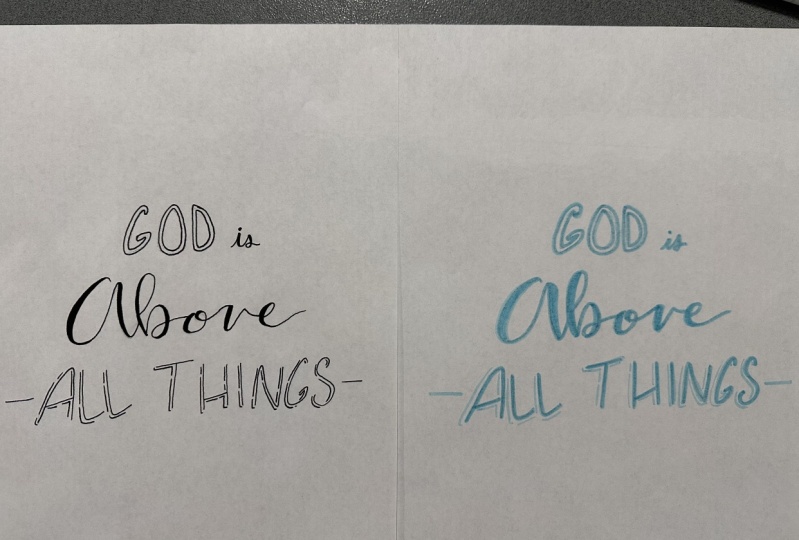 GOD is
Above
-ALL THINGS-
GOD is
Above
-ALL THINGS-